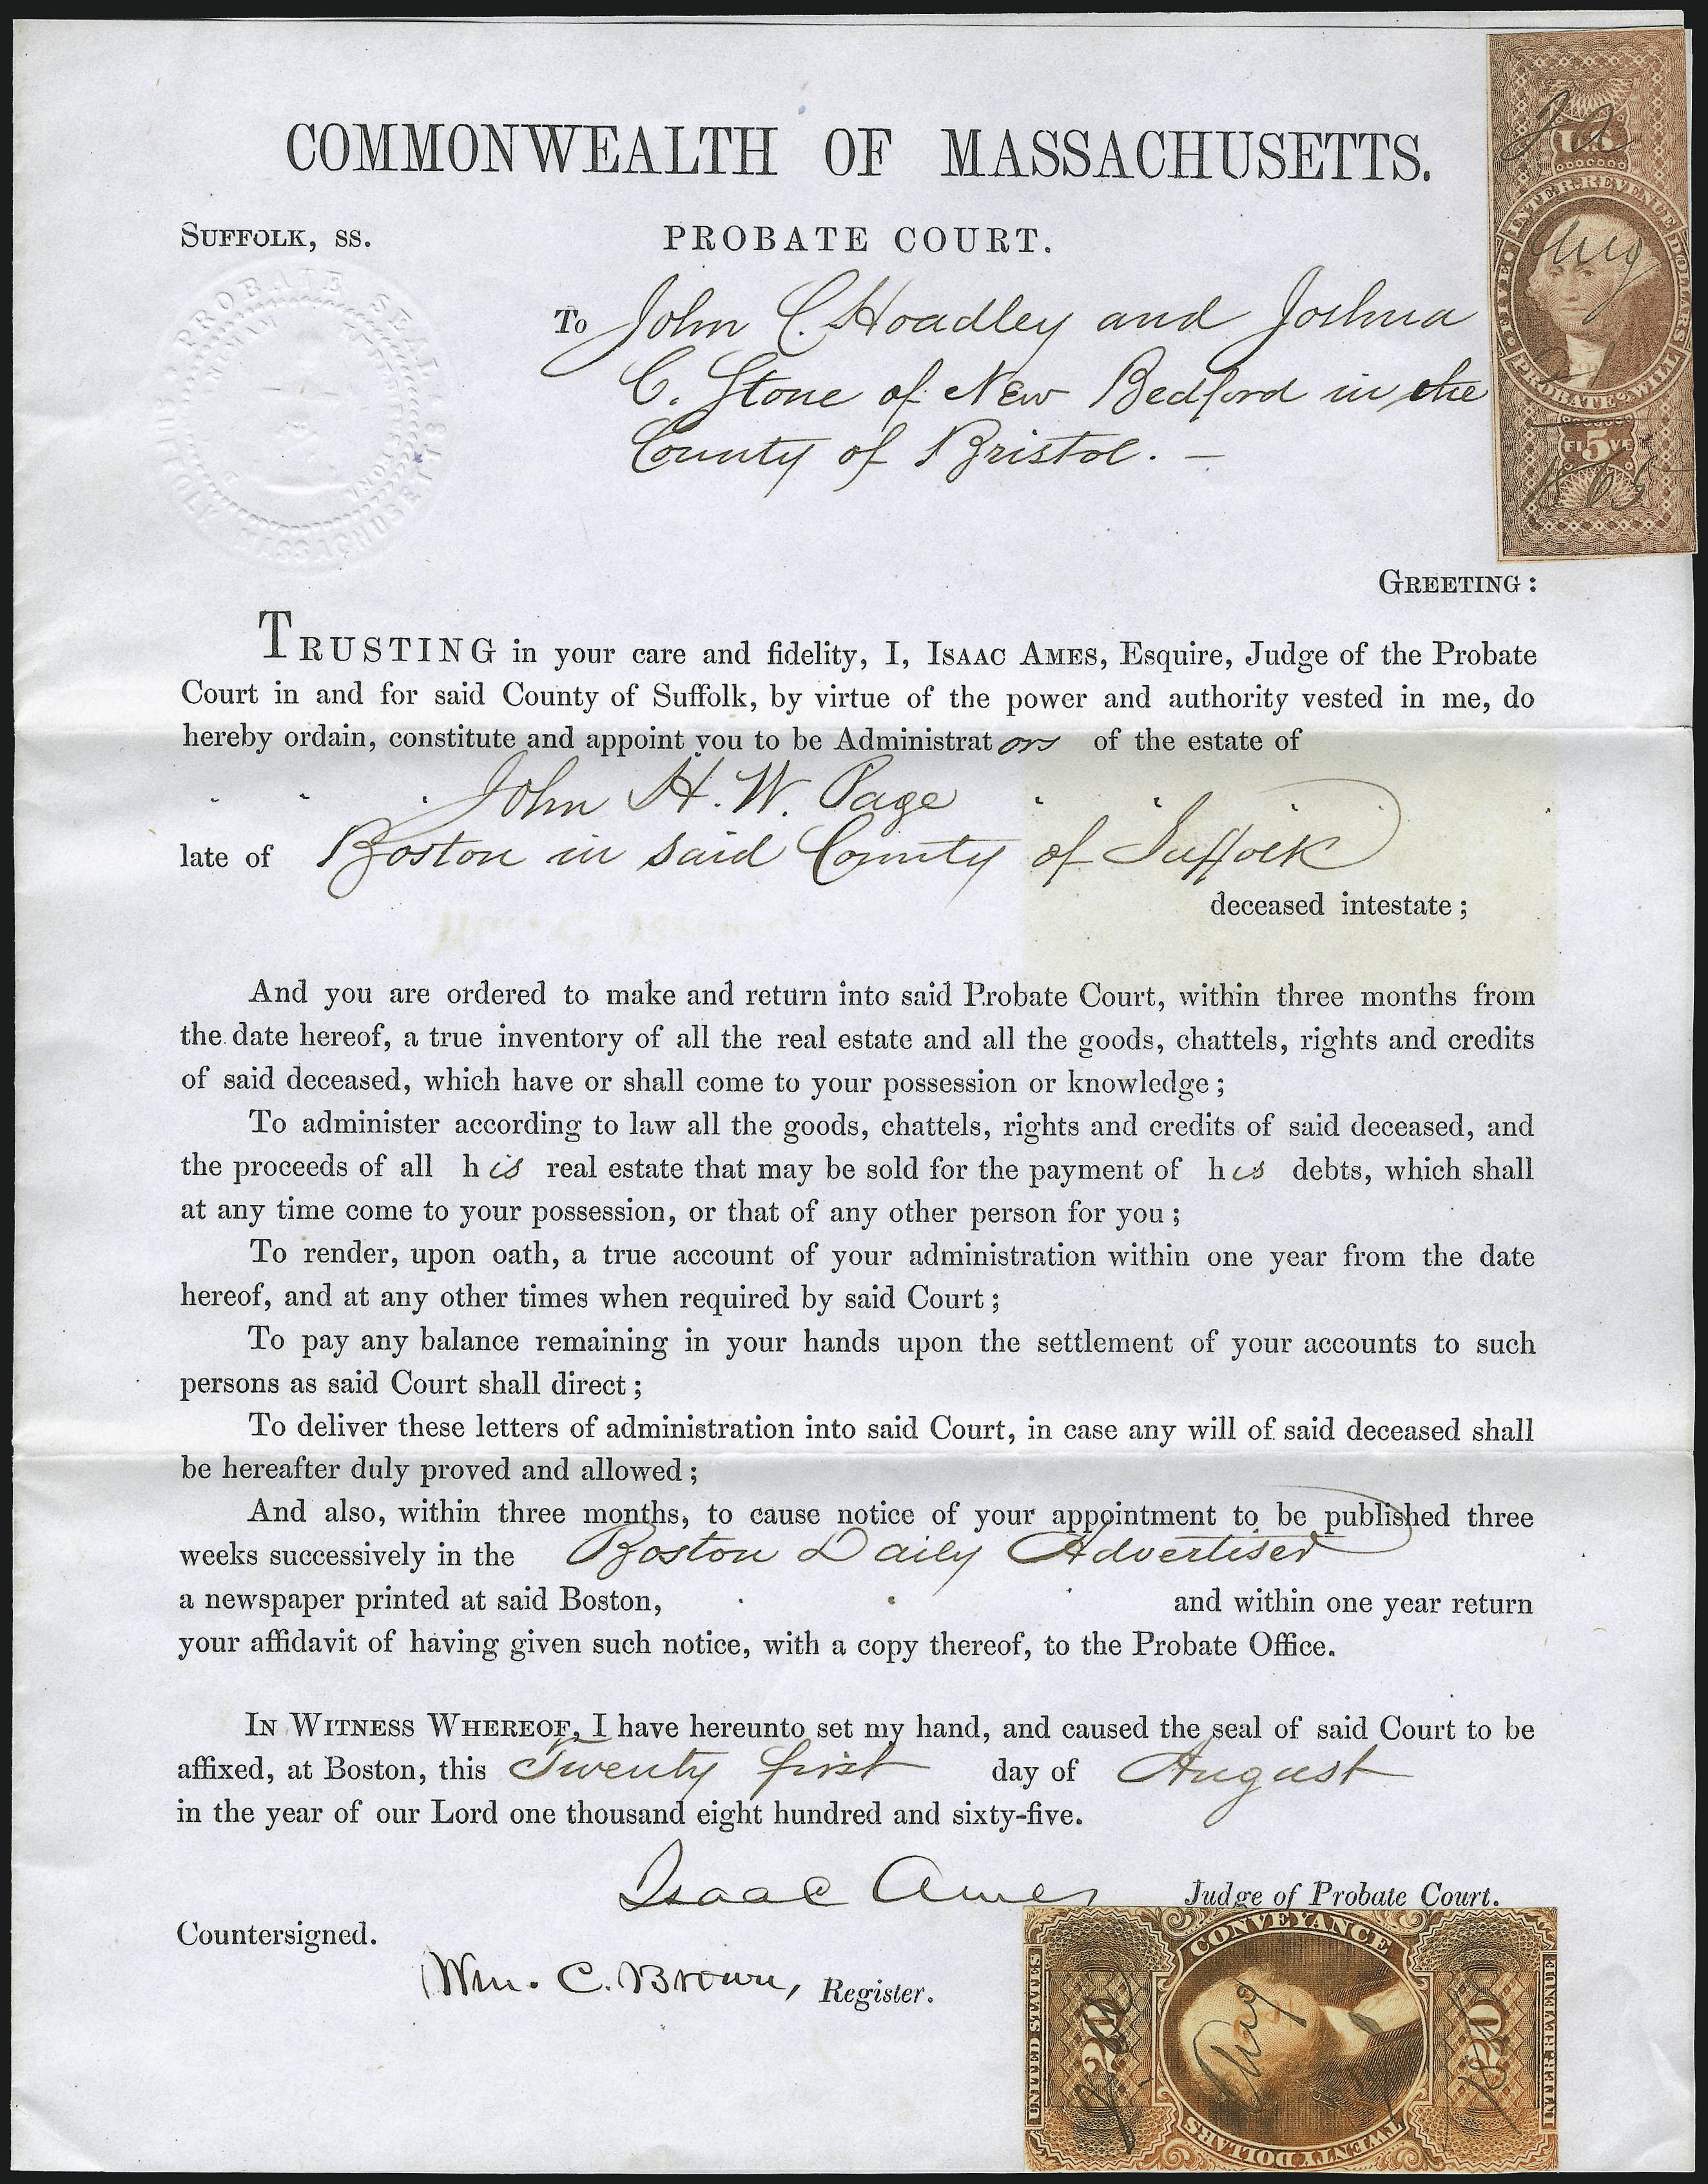 COMMONWEALTH OF MASSACHUSETTS.
SUFFOLK, SS.
PROBATE COURT.
PROBATE SEAL
MASSACHUSETTS
To John C. Hoadley and Joshua
C. Stone of New Bedford in the
County of Bristol. —
INTER. REVENUE
FIVE DOLLARS
PROBATE OF WILL
Aug
FI 5 VE
1865
GREETING:
TRUSTING in your care and fidelity, I, ISAAC AMES, Esquire, Judge of the Probate
Court in and for said County of Suffolk, by virtue of the power and authority vested in me, do
hereby ordain, constitute and appoint you to be Administrators of the estate of
John H. W. Page
late of Boston in said County of Suffolk
deceased intestate;
And you are ordered to make and return into said Probate Court, within three months from
the date hereof, a true inventory of all the real estate and all the goods, chattels, rights and credits
of said deceased, which have or shall come to your possession or knowledge;
To administer according to law all the goods, chattels, rights and credits of said deceased, and
the proceeds of all his real estate that may be sold for the payment of his debts, which shall
at any time come to your possession, or that of any other person for you;
To render, upon oath, a true account of your administration within one year from the date
hereof, and at any other times when required by said Court;
To pay any balance remaining in your hands upon the settlement of your accounts to such
persons as said Court shall direct;
To deliver these letters of administration into said Court, in case any will of said deceased shall
be hereafter duly proved and allowed;
And also, within three months, to cause notice of your appointment to be published three
weeks successively in the Boston Daily Advertiser
a newspaper printed at said Boston, and within one year return
your affidavit of having given such notice, with a copy thereof, to the Probate Office.
IN WITNESS WHEREOF, I have hereunto set my hand, and caused the seal of said Court to be
affixed, at Boston, this Twenty first day of August
in the year of our Lord one thousand eight hundred and sixty-five.
Isaac Ames Judge of Probate Court.
Countersigned.
Wm. C. Brown, Register.
CONVEYANCE
UNITED STATES
20
Aug
20
INTER. REVENUE
TWENTY DOLLARS